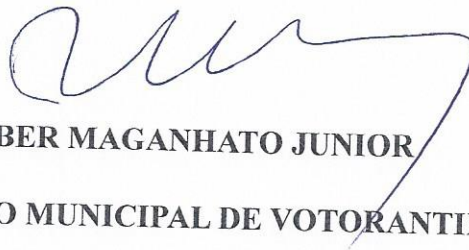 BER MAGANHATO JUNIOR
O MUNICIPAL DE VOTORANTI